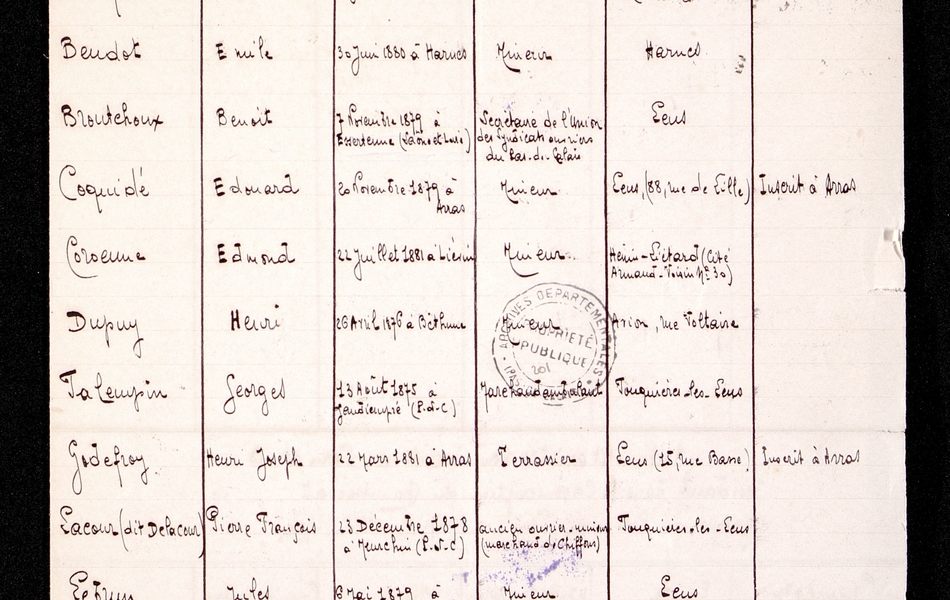 Beudot Emile 30 Juin 1880 à Harnes Mineur Harnes
Broutchoux Benoit 7 Novembre 1879 à Secrétaire de l'Union Lens
Essertenne (Saône et Loire) des Syndicats ouvriers
du Pas-de-Calais
Coquidé Edouard 20 Novembre 1879 à Mineur Lens, (88, rue de Lille) Inscrit à Arras
Arras
Coroenne Edmond 22 Juillet 1881 à Liévin Mineur Hénin-Liétard (Cité
Armand-Voisin N° 30)
Dupuy Henri 26 Avril 1876 à Béthune Mineur Avion, rue Voltaire
ARCHIVES DEPARTEMENTALES
PROPRIETÉ
PUBLIQUE
201
Falempin Georges 13 Août 1875 à Marchand ambulant Fouquières-les-Lens
(P.d-C)
Godefroy Henri Joseph 22 Mars 1881 à Arras Terrassier Lens (15, rue Basse) Inscrit à Arras
Lacour (dit Delacour) Pierre François 23 Décembre 1878 ancien ouvrier-mineur Fouquières-les-Lens
à Meurchin (P-d-C) (marchand de Chiffons)
Jules 6 Mai 1879 à Mineur Lens